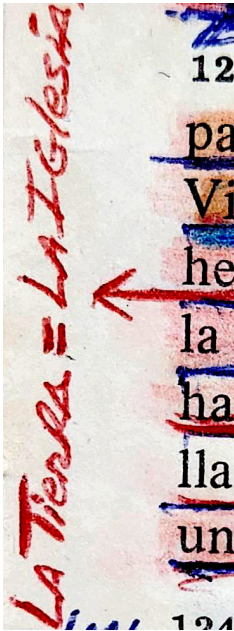 LA Tierra = LA IGlesia
12
pa
Vi
he
la
ha
lla
un
124